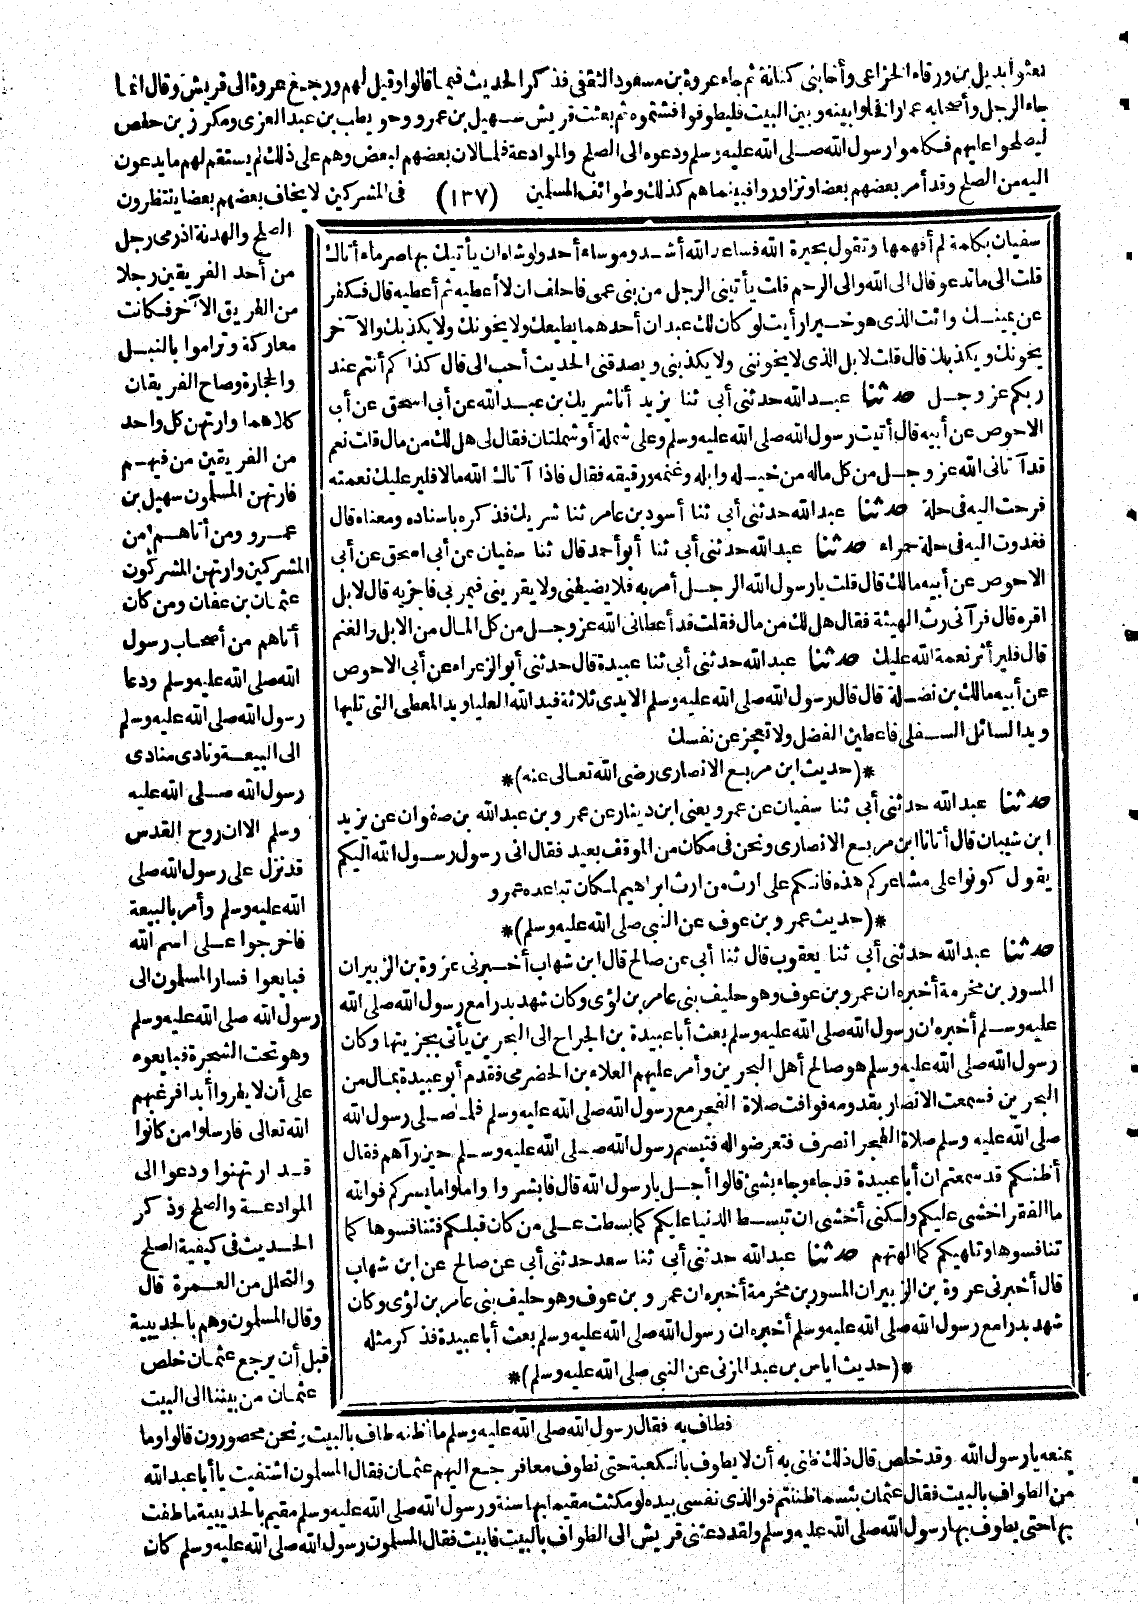 بعثوا بديل بن ورقاء الخزاعى وأخابنى كنانة ثم جاء عروة بن مسعود الثقفى فذكر الحديث فيما قالوا وقيل لهم ورجع عروة الى قريش وقال انما
جاء الرجل وأصحابه عمارا فخلوا بينه وبين البيت فليطوفوا فشتموه ثم بعثت قريش سهيل بن عمرو وحويطب بن عبد العزى ومكرز بن حفص
ليصلحوا عليهم فكلموا رسول الله صلى الله عليه وسلم ودعوه الى الصلح والموادعة فلما لان بعضهم لبعض وهم على ذلك لم يستقم لهم ما يدعون
اليه من الصلح وقد أمن بعضهم بعضا وتزاوروا فبينما هم كذلك وطوائف المسلمين (١٣٧) فى المشركين لا يخاف بعضهم بعضا ينتظرون
الصلح والهدنة اذ رمى رجل
من أحد الفريقين رجلا
من الفريق الآخر فكانت
معاركة وتراموا بالنبل
والحجارة وصاح الفريقان
كلاهما وارتهن كل واحد
من الفريقين من فيهم
فارتهن المسلمون سهيل بن
عمرو ومن أتاهم من
المشركين وارتهن المشركون
عثمان بن عفان ومن كان
أتاهم من أصحاب رسول
الله صلى الله عليه وسلم ودعا
رسول الله صلى الله عليه وسلم
الى البيعة ونادى منادى
رسول الله صلى الله عليه
وسلم الا ان روح القدس
قد نزل على رسول الله صلى
الله عليه وسلم وأمر بالبيعة
فاخرجوا على اسم الله
فبايعوا فسار المسلمون الى
رسول الله صلى الله عليه وسلم
وهو تحت الشجرة فبايعوه
على أن لا يفروا أبدا فرغبهم
الله تعالى فارسلوا من كانوا
قد ارتهنوا ودعوا الى
الموادعة والصلح وذكر
الحديث فى كيفية الصلح
والتحلل من العمرة قال
وقال المسلمون وهم بالحديبية
قبل أن يرجع عثمان خلص
عثمان من بيننا الى البيت
سفيان بكلمة لم أفهمها وتقول بحيرة الله فساعد الله أشد وموساه أحد ولو شاء ان يأتيك بها صرماء أتاك
قلت الى ما تدعو قال الى الله والى الرحم قلت يأتينى الرجل من بنى عمى فاحلف ان لا أعطيه ثم أعطيه قال فكفر
عن يمينك وائت الذى هو خير أرأيت لو كان لك عبدان أحدهما يطيعك ولا يخونك ولا يكذبك والآخر
يخونك ويكذبك قال قلت لا بل الذى لا يخوننى ولا يكذبنى ويصدقنى الحديث أحب الى قال كذا كم أنتم عند
ربكم عز وجل حدثنا عبد الله حدثنى أبى ثنا يزيد أنا شريك بن عبد الله عن أبى اسحق عن أبى
الاحوص عن أبيه قال أتيت رسول الله صلى الله عليه وسلم وعلى شملة أو شملتان فقال لى هل لك من مال قلت نعم
قد آتانى الله عز وجل من كل ماله من خيله وابله وغنمه ورقيقه فقال فاذا آتاك الله مالا فلير عليك نعمته
فرحت اليه فى حلة حدثنا عبد الله حدثنى أبى ثنا أسود بن عامر ثنا شريك فذكره باسناده ومعناه قال
فغدوت اليه فى حلة حمراء حدثنا عبد الله حدثنى أبى ثنا أبو أحمد قال ثنا سفيان عن أبى اسحق عن أبى
الاحوص عن أبيه مالك قال قلت يا رسول الله الرجل أمر به فلا يضيفنى ولا يقرينى فيمر بى فاجزيه قال لا بل
اقره قال فرآنى رث الهيئة فقال هل لك من مال فقلت قد أعطانى الله عز وجل من كل المال من الابل والغنم
قال فلير أثر نعمة الله عليك حدثنا عبد الله حدثنى أبى ثنا عبيدة قال حدثنى أبو الزعراء عن أبى الاحوص
عن أبيه مالك بن نضلة قال قال رسول الله صلى الله عليه وسلم الايدى ثلاثة فيد الله العليا ويد المعطى التى تليها
ويد السائل السفلى فاعطين الفضل ولا تعجز عن نفسك
*(حديث ابن مربع الانصارى رضى الله تعالى عنه)*
حدثنا عبد الله حدثنى أبى ثنا سفيان عن عمرو يعنى ابن دينار عن عمرو بن عبد الله بن صفوان عن يزيد
ابن شيبان قال أتانا ابن مربع الانصارى ونحن فى مكان من الموقف بعيد فقال انى رسول رسول الله اليكم
يقول كونوا على مشاعركم هذه فانكم على ارث من ارث ابراهيم لمكان تباعده عمرو
*(حديث عمرو بن عوف عن النبى صلى الله عليه وسلم)*
حدثنا عبد الله حدثنى أبى ثنا يعقوب قال ثنا أبى عن صالح قال ابن شهاب أخبرنى عروة بن الزبير ان
المسور بن مخرمة أخبره ان عمرو بن عوف وهو حليف بنى عامر بن لؤى وكان شهد بدرا مع رسول الله صلى الله
عليه وسلم أخبره ان رسول الله صلى الله عليه وسلم بعث أبا عبيدة بن الجراح الى البحرين يأتى بجزيتها وكان
رسول الله صلى الله عليه وسلم هو صالح أهل البحرين وأمر عليهم العلاء بن الحضرمى فقدم أبو عبيدة بمال من
البحرين فسمعت الانصار بقدومه فوافت صلاة الفجر مع رسول الله صلى الله عليه وسلم فلما صلى رسول الله
صلى الله عليه وسلم صلاة الفجر انصرف فتعرضوا له فتبسم رسول الله صلى الله عليه وسلم حين رآهم فقال
أظنكم قد سمعتم ان أبا عبيدة قد جاء وجاء بشئ قالوا أجل يا رسول الله قال فابشروا واملوا ما يسركم فوالله
ما الفقر اخشى عليكم ولكنى أخشى ان تبسط الدنيا عليكم كما بسطت على من كان قبلكم فتنافسوها كما
تنافسوها وتلهيكم كما الهتهم حدثنا عبد الله حدثنى أبى ثنا سعد حدثنى أبى عن صالح عن ابن شهاب
قال أخبرنى عروة بن الزبير ان المسور بن مخرمة أخبره ان عمرو بن عوف وهو حليف بنى عامر بن لؤى وكان
شهد بدرا مع رسول الله صلى الله عليه وسلم أخبره ان رسول الله صلى الله عليه وسلم بعث أبا عبيدة فذكر مثله
*(حديث اياس بن عبد المزنى عن النبى صلى الله عليه وسلم)*
فطاف به فقال رسول الله صلى الله عليه وسلم ما أظنه طاف بالبيت ونحن محصورون قالوا وما
يمنعه يا رسول الله وقد خلص قال ذلك ظنى به أن لا يطوف بالكعبة حتى نطوف معا فرجع اليهم عثمان فقال المسلمون اشتفيت يا أبا عبد الله
من الطواف بالبيت فقال عثمان بئسما ظننتم فوالذى نفسى بيده لو مكثت مقيما بها سنة ورسول الله صلى الله عليه وسلم مقيم بالحديبية ما طفت
بها حتى يطوف بها رسول الله صلى الله عليه وسلم ولقد دعتنى قريش الى الطواف بالبيت فابيت فقال المسلمون رسول الله صلى الله عليه وسلم كان